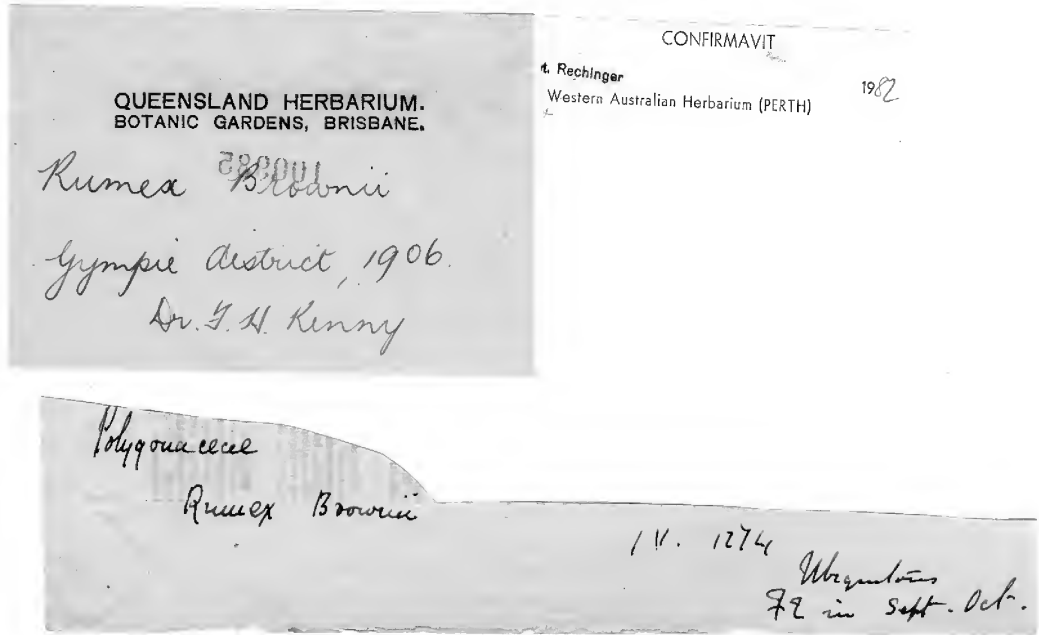 QUEENSLAND HERBARIUM.
BOTANIC GARDENS, BRISBANE.
Rumex Brownii
Gympie district, 1906.
Dr. F. H. Kenny
CONFIRMAVIT
Rechinger
1982
Western Australian Herbarium (PERTH)
Polygonaceae
Rumex Brownii
IV. 1274
Ubiquitous
in Sept. - Oct.